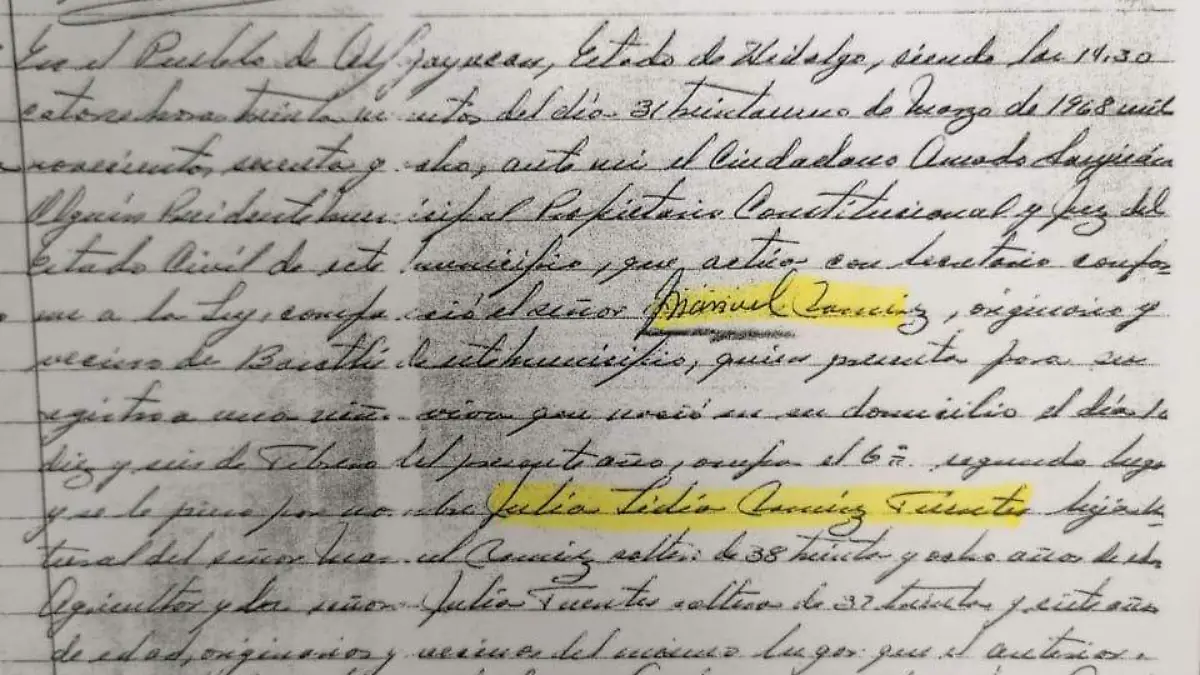 En el Pueblo de Alfajayucan, Estado de Hidalgo, siendo las 14.30
catorce horas treinta minutos del día 31 treintauno de Marzo de 1968 mil
novecientos sesenta y ocho, ante mi el Ciudadano Amado
Olguín Presidente municipal Propietario Constitucional y Juez del
Estado Civil de este municipio, que actúa con Secretario confor-
me a la Ley, compareció el señor Manuel Ramirez, originario y
vecino de de este municipio, quien presenta para su
registro a una niña viva que nació en su domicilio el día 16
diez y seis de Febrero del presente año, ocupa el segundo lugar
y se le puso por nombre Julia Lidia Ramirez Fuentes hija na-
tural del señor Manuel Ramirez soltero de 38 treinta y ocho años de edad
Agricultor y la señora Julia Fuentes soltera de 37 treinta y siete años
de edad, originarios y vecinos del mismo lugar que el anterior.